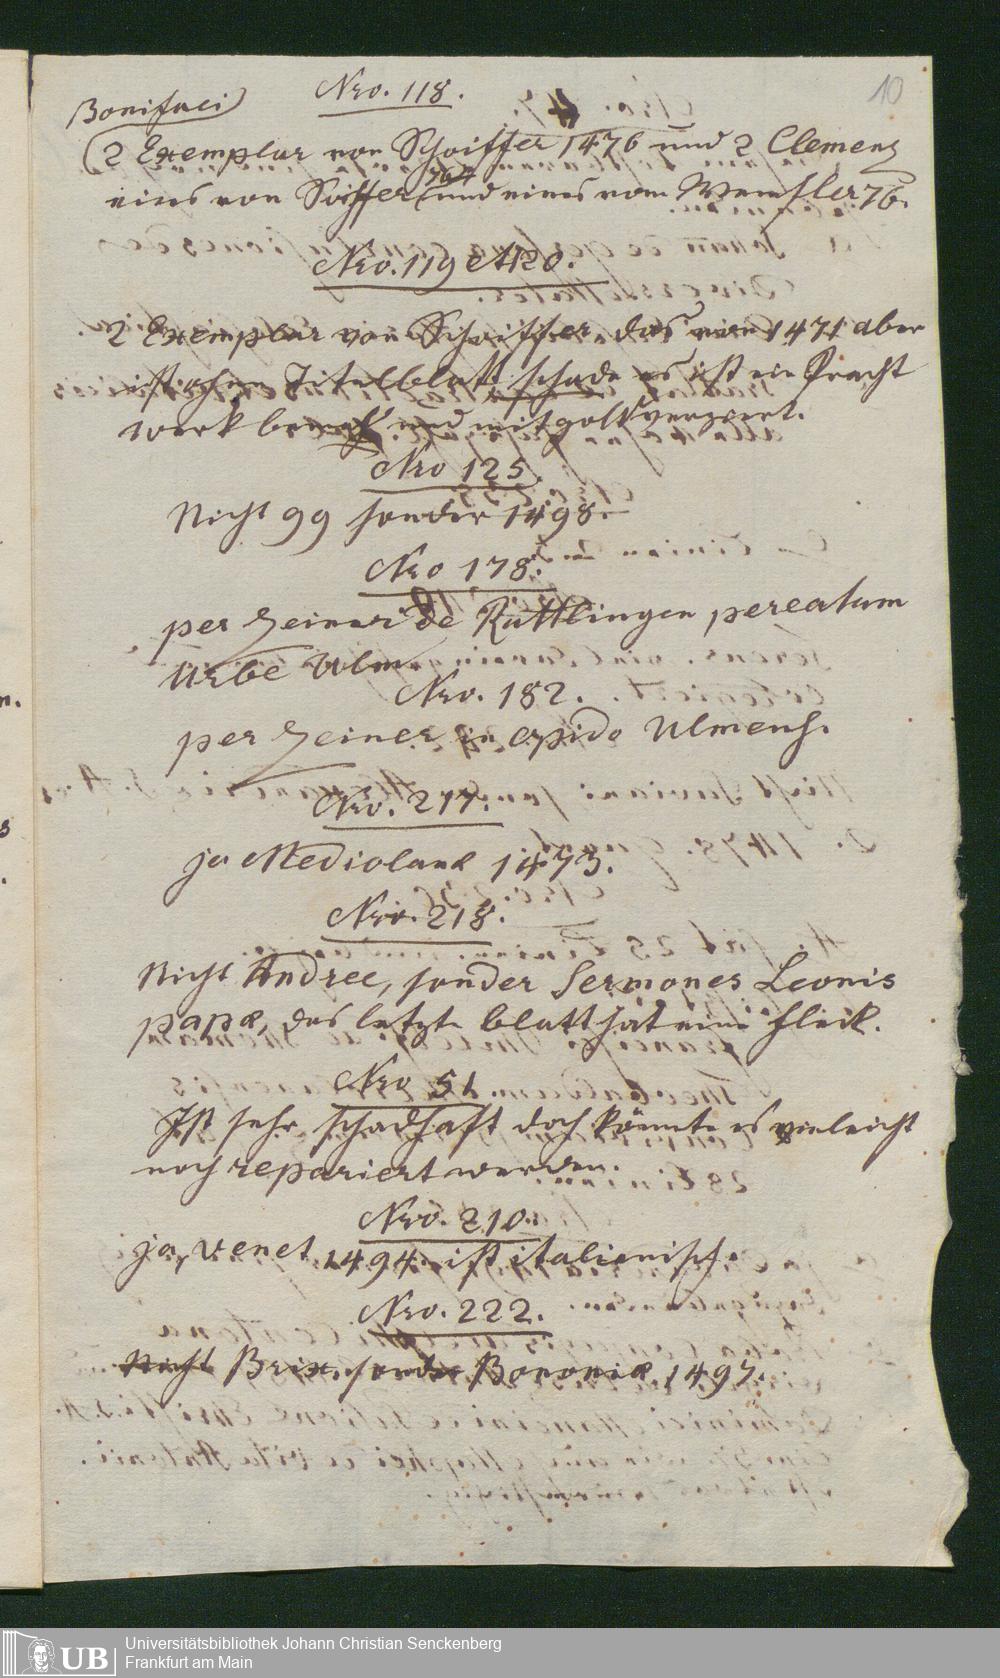 10
Nro. 118.
Bonifaci
2 Exemplar von Schoiffer 1476 und 2 Clemens
eins von Soiffer 76 und eines vom Wensler 76.
Nro. 119 120.
2 Exemplar von Schoiffer, das von 1471 aber
ist ohne Titelblatt schade es ist ein Pracht
werk und mit gold verziert.
Nro 125.
Nicht 99 sonder 1498.
Nro 178.
per Zeiner de Rüttlingen
Urbe Ulm
Nro. 182.
per Zeiner in opido Ulmens.
Nro. 217.
ja Mediolanæ 1473.
Nro. 218.
Nicht Andree, sonder Sermones Leonis
papæ, das letzte blatt hat eine fleck.
Nro 51
Ist sehr schadhaft doch könnte es vieleicht
noch repariert werden.
Nro. 210.
ja, venet 1494. ist italienisch.
Nro. 222.
Nicht Brix. sonder Bononiæ 1497.
Universitätsbibliothek Johann Christian Senckenberg
UB Frankfurt am Main